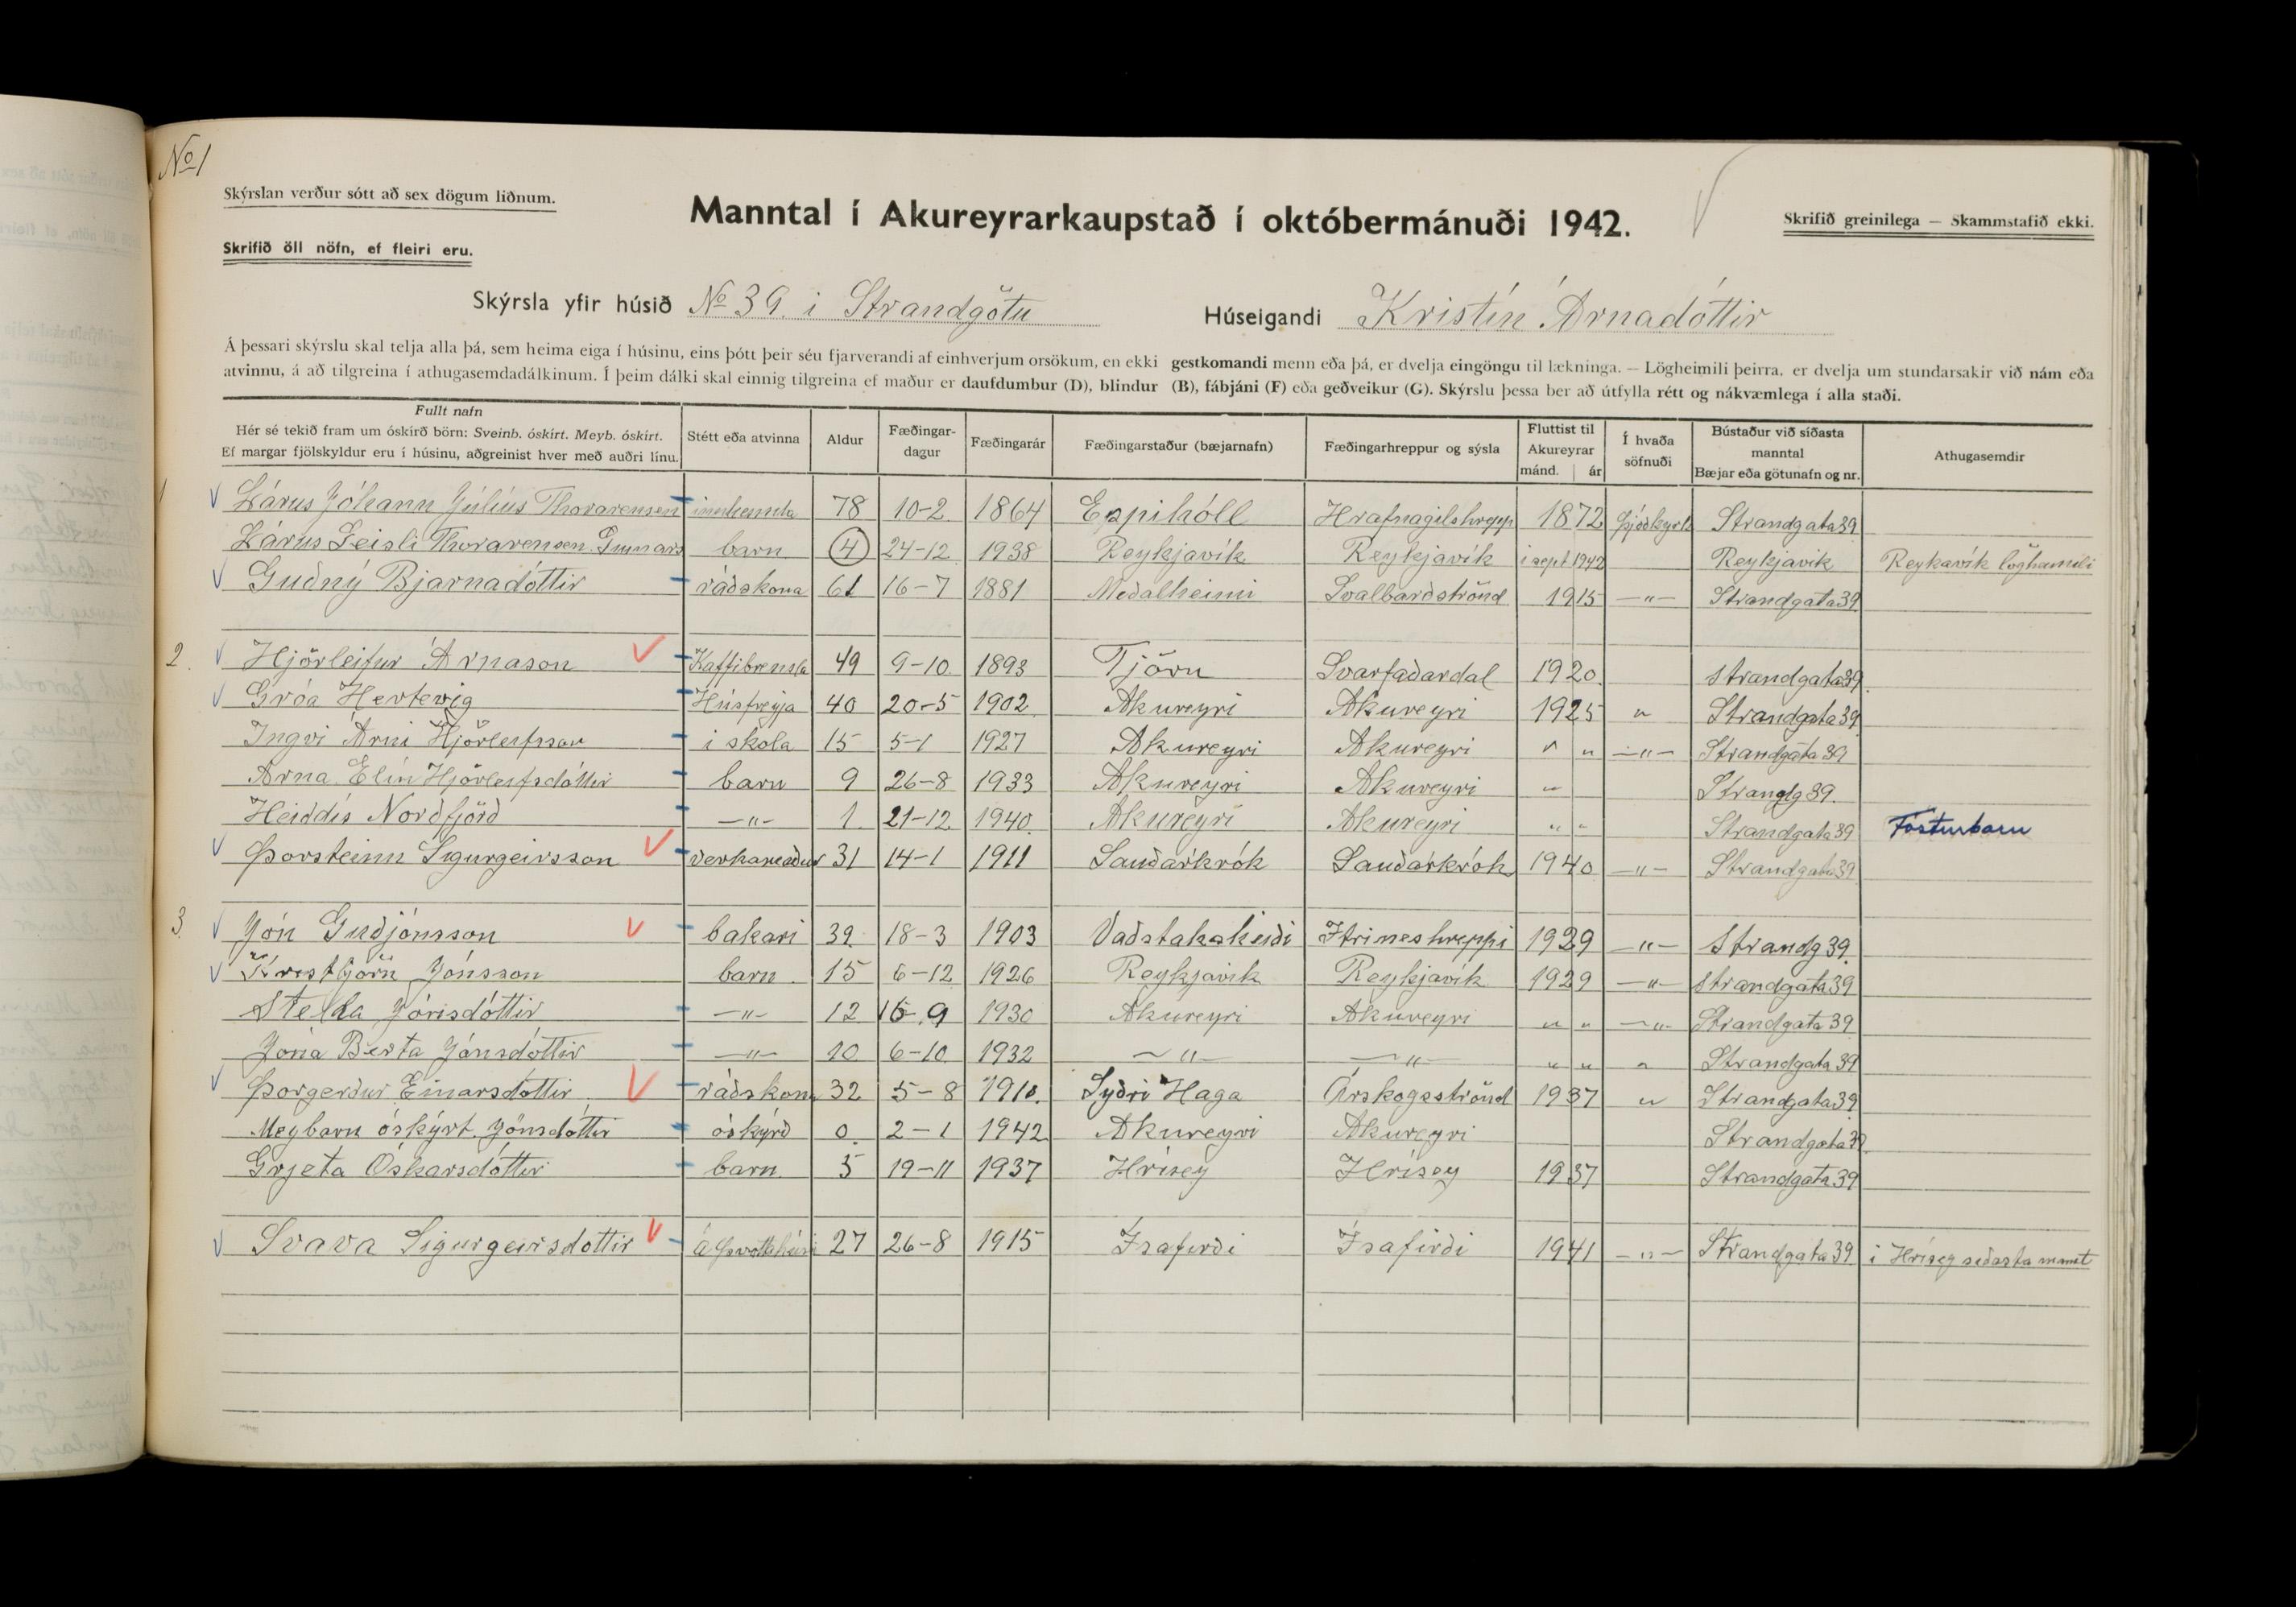 No 1
Skýrslan verður sótt að sex dögum liðnum.
Skrifið öll nöfn, ef fleiri eru.
Manntal í Akureyrarkaupstað í októbermánuði 1942.
Skrifið greinilega — Skammstafið ekki.
Skýrsla yfir húsið No 39. i Strandgötu Húseigandi Kristín Árnadóttir
Á þessari skýrslu skal telja alla þá, sem heima eiga í húsinu, eins þótt þeir séu fjarverandi af einhverjum orsökum, en ekki gestkomandi menn eða þá, er dvelja eingöngu til lækninga. — Lögheimili þeirra, er dvelja um stundarsakir við nám eða
atvinnu, á að tilgreina í athugasemdadálkinum. Í þeim dálki skal einnig tilgreina ef maður er daufdumbur (D), blindur (B), fábjáni (F) eða geðveikur (G). Skýrslu þessa ber að útfylla rétt og nákvæmlega í alla staði.
Fullt nafn
Hér sé tekið fram um óskírð börn: Sveinb. óskírt. Meyb. óskírt.
Ef margar fjölskyldur eru í húsinu, aðgreinist hver með auðri línu.
Stétt eða atvinna
Aldur
Fæðingar-
dagur
Fæðingarár
Fæðingarstaður (bæjarnafn)
Fæðingarhreppur og sýsla
Fluttist til
Akureyrar
mánd. ár
Í hvaða
söfnuði
Bústaður við síðasta
manntal
Bæjar eða götunafn og nr.
Athugasemdir
1 Lárus Jóhann Júlíus Thorarensen innheimta 78 10-2 1864 Espihóll Hrafnagilshrepp 1872 Strandgata 39
Lárus Geisli Thorarensen Gunnars barn 4 24-12 1938 Reykjavík Reykjavík i sept 1942 Reykjavík Reykavík lögheimili
Guðný Bjarnadóttir ráðskona 61 16-7 1881 Meðalheimi Svalbarðströnd 1915 —"— Strandgata 39
2. Hjörleifur Árnason Kaffibrensla 49 9-10 1893 Tjörn Svarfaðardal 1920. strandgata 39
Gróa Hertervig Húsfreyja 40 20-5 1902 Akureyri Akureyri 1925 " Strandgata 39
Ingvi Árni Hjörleifsson i skola 15 5-1 1927 Akureyri Akureyri " " —"— Strandgata 39
Arna Elín Hjörleifsdóttir barn 9 26-8 1933 Akureyri Akureyri " Strandg 39.
Heiddís Norðfjörð —"— 1 21-12 1940 Akureyri Akureyri " " Strandgata 39 Fósturbarn
Þorsteinn Sigurgeirsson verkamaður 31 14-1 1911 Sauðárkrók Sauðárkrók 1940 —"— Strandgata 39
3. Jón Guðjónsson bakari 39 18-3 1903 1929 —"— Strandg 39.
Kristbjörn Jónsson barn 15 6-12 1926 Reykjavik Reykjavík 1929 —"— strandgata 39
Stella Jónsdóttir —"— 12 15-9 1930 Akureyri Akureyri " " —"— Strandgata 39
Jóna Berta Jónsdóttir —"— 10 6-10 1932 —"— —"— " " " Strandgata 39
Þorgerður Einarsdóttir ráðskona 32 5-8 1910. Syðri Haga Árskogsströnd 1937 " Strandgata 39
Meybarn óskýrt Jónsdóttir óskýrð 0 2-1 1942 Akureyri Akureyri Strandgata 39
Grjeta Óskarsdóttir barn 5 19-11 1937 Hrísey Hrísey 1937 Strandgata 39
Svava Sigurgeirsdottir Á Þvottahúsi 27 26-8 1915 Ísafirði Ísafirði 1941 —"— Strandgata 39 i Hrísey siðasta mannt